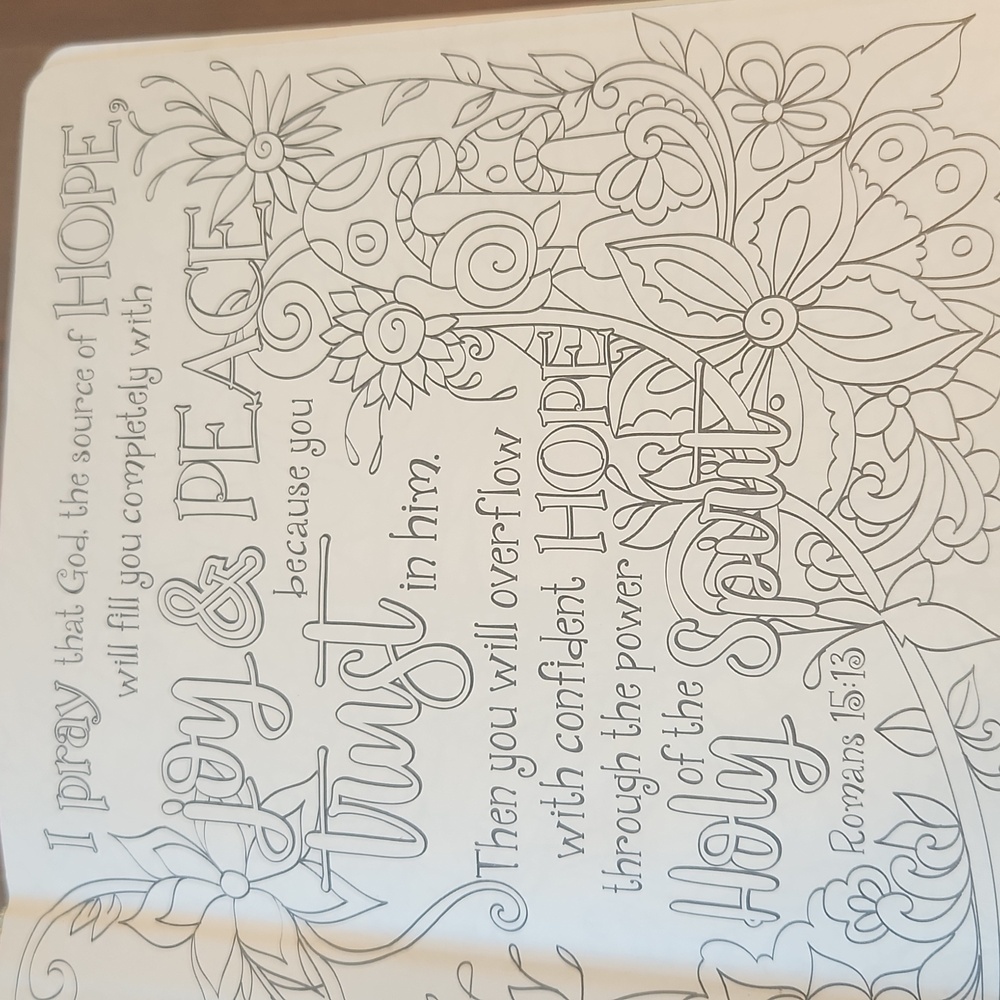 I pray that God, the source of HOPE,
will fill you completely with
joy & PEACE
because you
trust in him.
Then you will overflow
with confident HOPE
through the power
of the
Holy Spirit.
Romans 15:13